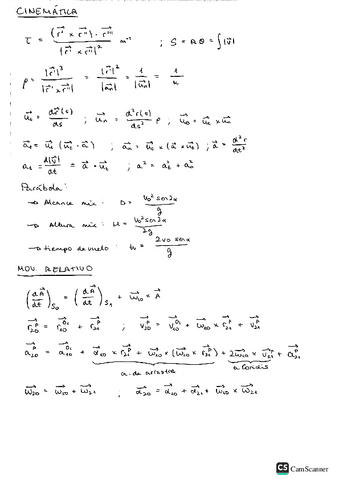 CINEMÁTICA
τ = (r⃗' × r⃗'')· r⃗''' / |r⃗' × r⃗''|² m⁻¹ ; S = Rθ = ∫|v⃗|
ρ = |r⃗'|³ / |r⃗' × r⃗''| = |r⃗'|² / |a⃗n| = 1 / |u⃗n| = 1 / κ
u⃗t = dr⃗(s) / ds ; u⃗n = d²r(s) / ds² ρ ; u⃗b = u⃗t × u⃗n
a⃗t = u⃗t (u⃗t · a⃗) ; a⃗n = u⃗t × (a⃗ × u⃗t) ; a⃗ = d²r / dt²
at = d|v⃗| / dt = a⃗ · u⃗t ; a² = at² + an²
Parábola:
→ Alcance máx: D = v0² sen2α / g
→ Altura máx: H = v0² sen²α / 2g
→ tiempo de vuelo: tv = 2v0 senα / g
MOV. RELATIVO
(dA⃗/dt)S0 = (dA⃗/dt)S1 + ω⃗10 × A⃗
r⃗20ᴾ = r⃗10ᴼ¹ + r⃗21ᴾ ; v⃗20ᴾ = v⃗10ᴼ¹ + ω⃗10 × r⃗21ᴾ + v⃗21ᴾ
a⃗20ᴾ = a⃗10ᴼ¹ + α⃗10 × r⃗21ᴾ + ω⃗10 × (ω⃗10 × r⃗21ᴾ) + 2ω⃗10 × v⃗21ᴾ + a⃗21ᴾ
a. de arrastre a. Coriolis
ω⃗20 = ω⃗10 + ω⃗21 ; α⃗20 = α⃗10 + α⃗21 + ω⃗10 × ω⃗21
CS CamScanner